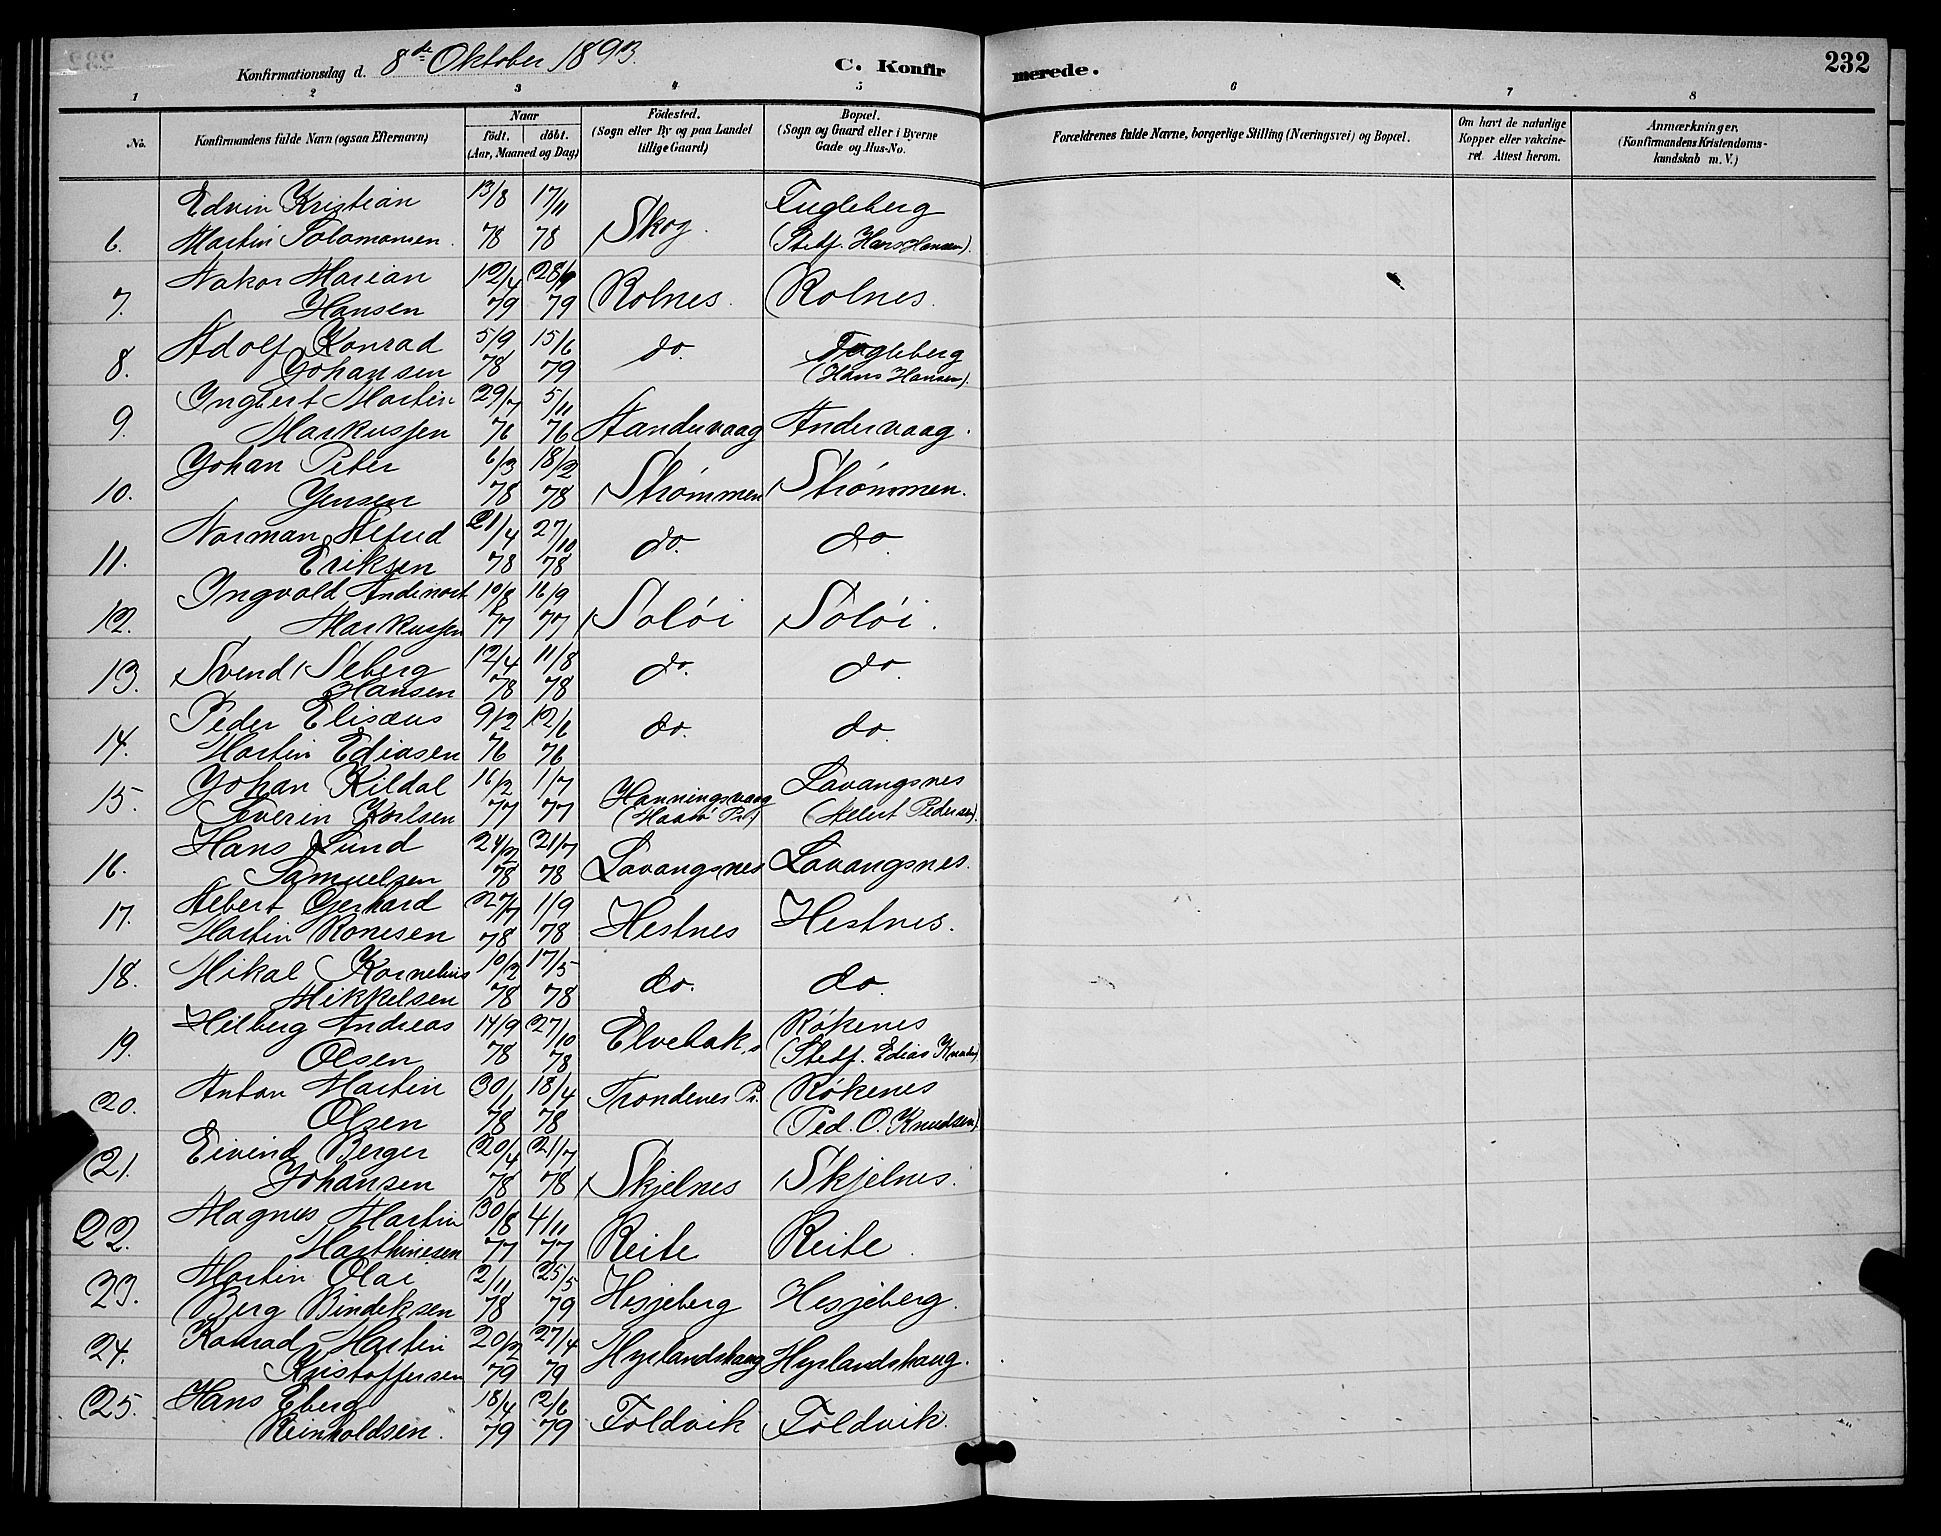 Konfirmationsdag d. 8de Oktober 1893.
C. Konfirmerede.
232
1 2 3 4 5 6 7 8
No.
Konfirmandens fulde Navn (ogsaa Efternavn)
Naar
födt. döbt.
(Aar, Maaned og Dag)
Födested.
(Sogn eller By og paa Landet
tillige Gaard)
Bopæl.
(Sogn og Gaard eller i Byerne
Gade og Hus-No.
Forældrenes fulde Navne, borgerlige Stilling (Næringsvei) og Bopæl.
Om havt de naturlige
Kopper eller vakcine-
ret. Attest herom.
Anmærkninger.
(Konfirmandens Kristendoms-
kundskab m. V.)
Edvin Kristian 13/8 17/11 Fugleberg
6. Martin Salamonsen. 78 78 Skog. (Stedf. Hans Hansen).
Hakor Marian 12/4 28/9
7. Hansen 79 79 Rolnes. Rolnes.
Adolf Konrad 5/9 15/6 do. Fugleberg
8. Johansen 78 79 (Hans Hansen).
Ingbert Martin 29/7 5/11
9. Markussen 76 76 Aandervaag Andervaag.
Johan Peter 6/3 18/2
10. Jensen 78 78 Strømmen Strømmen.
Norman 21/4 27/10 do. do.
11. Eriksen 78 78
Ingvald 10/8 16/9
12. Markussen 77 77 Soløi Soløi.
Svend Seberg 12/4 11/8 do. do.
13. Hansen 78 78
Peder Elisæus 9/2 12/6 do. do.
14. Martin Ediasen 76 76
Johan Kildal 16/2 1/7 Lavangsnes
15. Severin Karlsen 77 77 Honningsvaag (Albert Pedersen).
Hans Lund 24/2 21/7
16. Samuelsen 78 78 Lavangsnes Lavangsnes.
Albert Gerhard 27/7 1/9
17. Martin Ronesen 78 78 Hestnes Hestnes.
Mikal Kornelius 10/2 17/5 do. do.
18. Mikkelsen 78 78
Hilberg Andreas 14/9 27/10 Elvebak, Røkenes
19. Olsen 78 78 (Stedf. Edias
Anton Martin 30/1 18/4 Trondenes Pr. Røkenes
20. Olsen 78 78 (Ped. O. Knudsen)
Eivind Berger 20/4 21/7
21. Johansen 78 78 Skjelnes Skjelnes.
Magnus Martin 30/8 4/11
22. Marthinesen 77 77 Reite Reite.
Martin Olai 2/11 25/5
23. Berg Bindiksen 78 79 Hesjeberg Hesjeberg.
Konrad Martin 20/2 27/4
24. Kristoffersen 79 79 Hyslandshaug Hyslandshaug.
Hans Eberg 18/4 2/6
25. Reinholdsen. 79 79 Foldvik Foldvik.